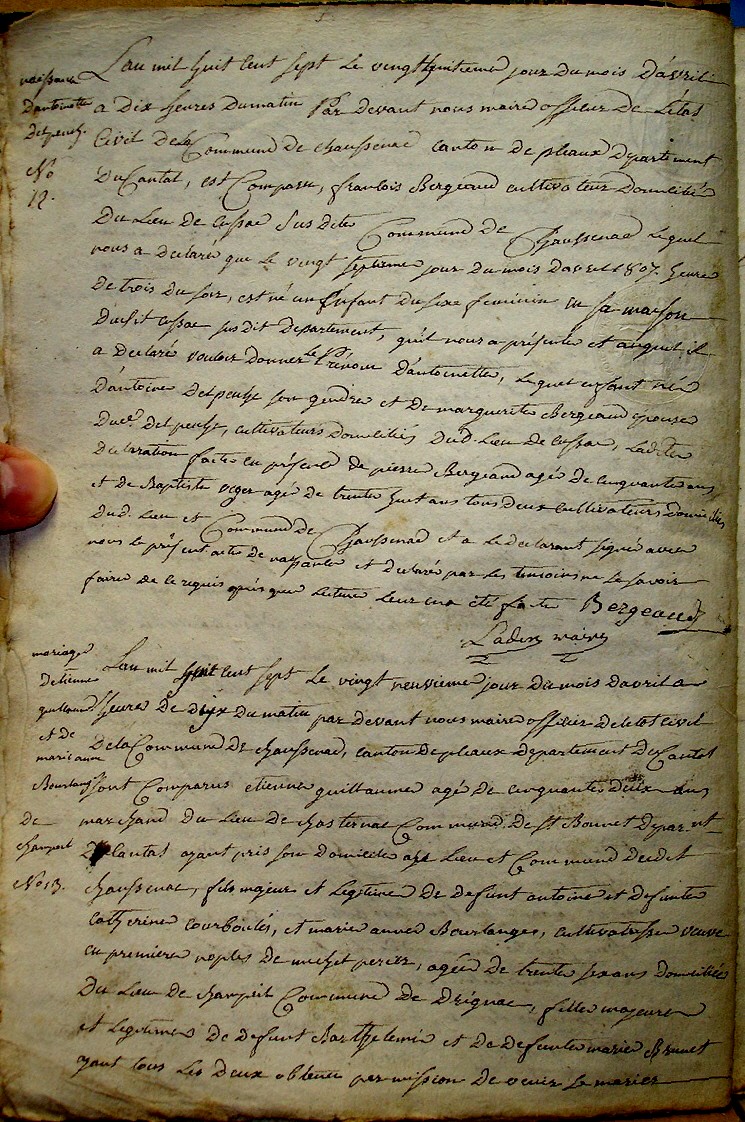 naissance
Dantoinette
Delpeuch.
No
12.
Lan mil huit Cent sept Le vingthuitieme jour Du mois Davril
a Dix heures Dumatin Par Devant nous maire officier De Létat
Civil DelaCommune De chaussenac canton De pleaux Département
DuCantal, est Comparu, francois Bergeaud cultivateur Domicilié
Du Lieu De Cussac Susdite Commune De Chaussenac Lequel
nous a Déclaré que Le vingt septieme jour Du mois Davril 1807. heure
De trois Du soir, est né un Enfant Du sexe feminin en sa maison
Dudit Cussac susdit Departement, quil nous a présenté et auquel il
a Declaré vouloir Donner Le Prénom Dantoinette, Lequel enfant née
Dantoine Delpeuch son gendre et De marguerite Bergeaud épouse
Dud. Delpeuch, cultivateurs Domiciliés Dud. Lieu De Cussac, Ladite
Declaration faite en présence De pierre Bergeaud agé De cinquante ans
et De Baptiste veger agé De trente huit ans tous Deux Cultivateurs Domiciliés
Dud. Lieu et Commune De Chaussenac et a Le declarant signé avec
nous Le présent acte De naissance et Déclaré par Les temoins ne Le savoir
faire De ce requis après que Lecture Leur en a été faite Bergeaud
Laden maire
mariage
Detienne
guillaume
et De
marie anne
Bourlange
De
champeil
No 13.
Lan mil huit Cent sept Le vingt neuvieme jour Du mois Davril a
heure De Dix Du matin par devant nous maire officier De Letat Civil
De la Commune De chaussenac, canton De pleaux Departement Du Cantal
sont Comparus etienne guillaume agé De cinquante Deux ans
marchand Du Lieu De chasternac Commune De st Bonnet Departmt
Du Cantal ayant pris son Domicile aux Lieu et Commune Dudit
chaussenac, fils majeur et Legitime De Defunt antoine et Defunte
Catherine Courboulés, et marie anne Bourlange, cultivatrice veuve
en premiere nopces De michel perier, agée De trente six ans Domiciliée
Du Lieu De champeil Commune De Drignac, fille majeure
et Legitime De Defunt Barthelemie et De Defunte marie Brunet
ayant tous Les Deux obtenu permission De venir se marier